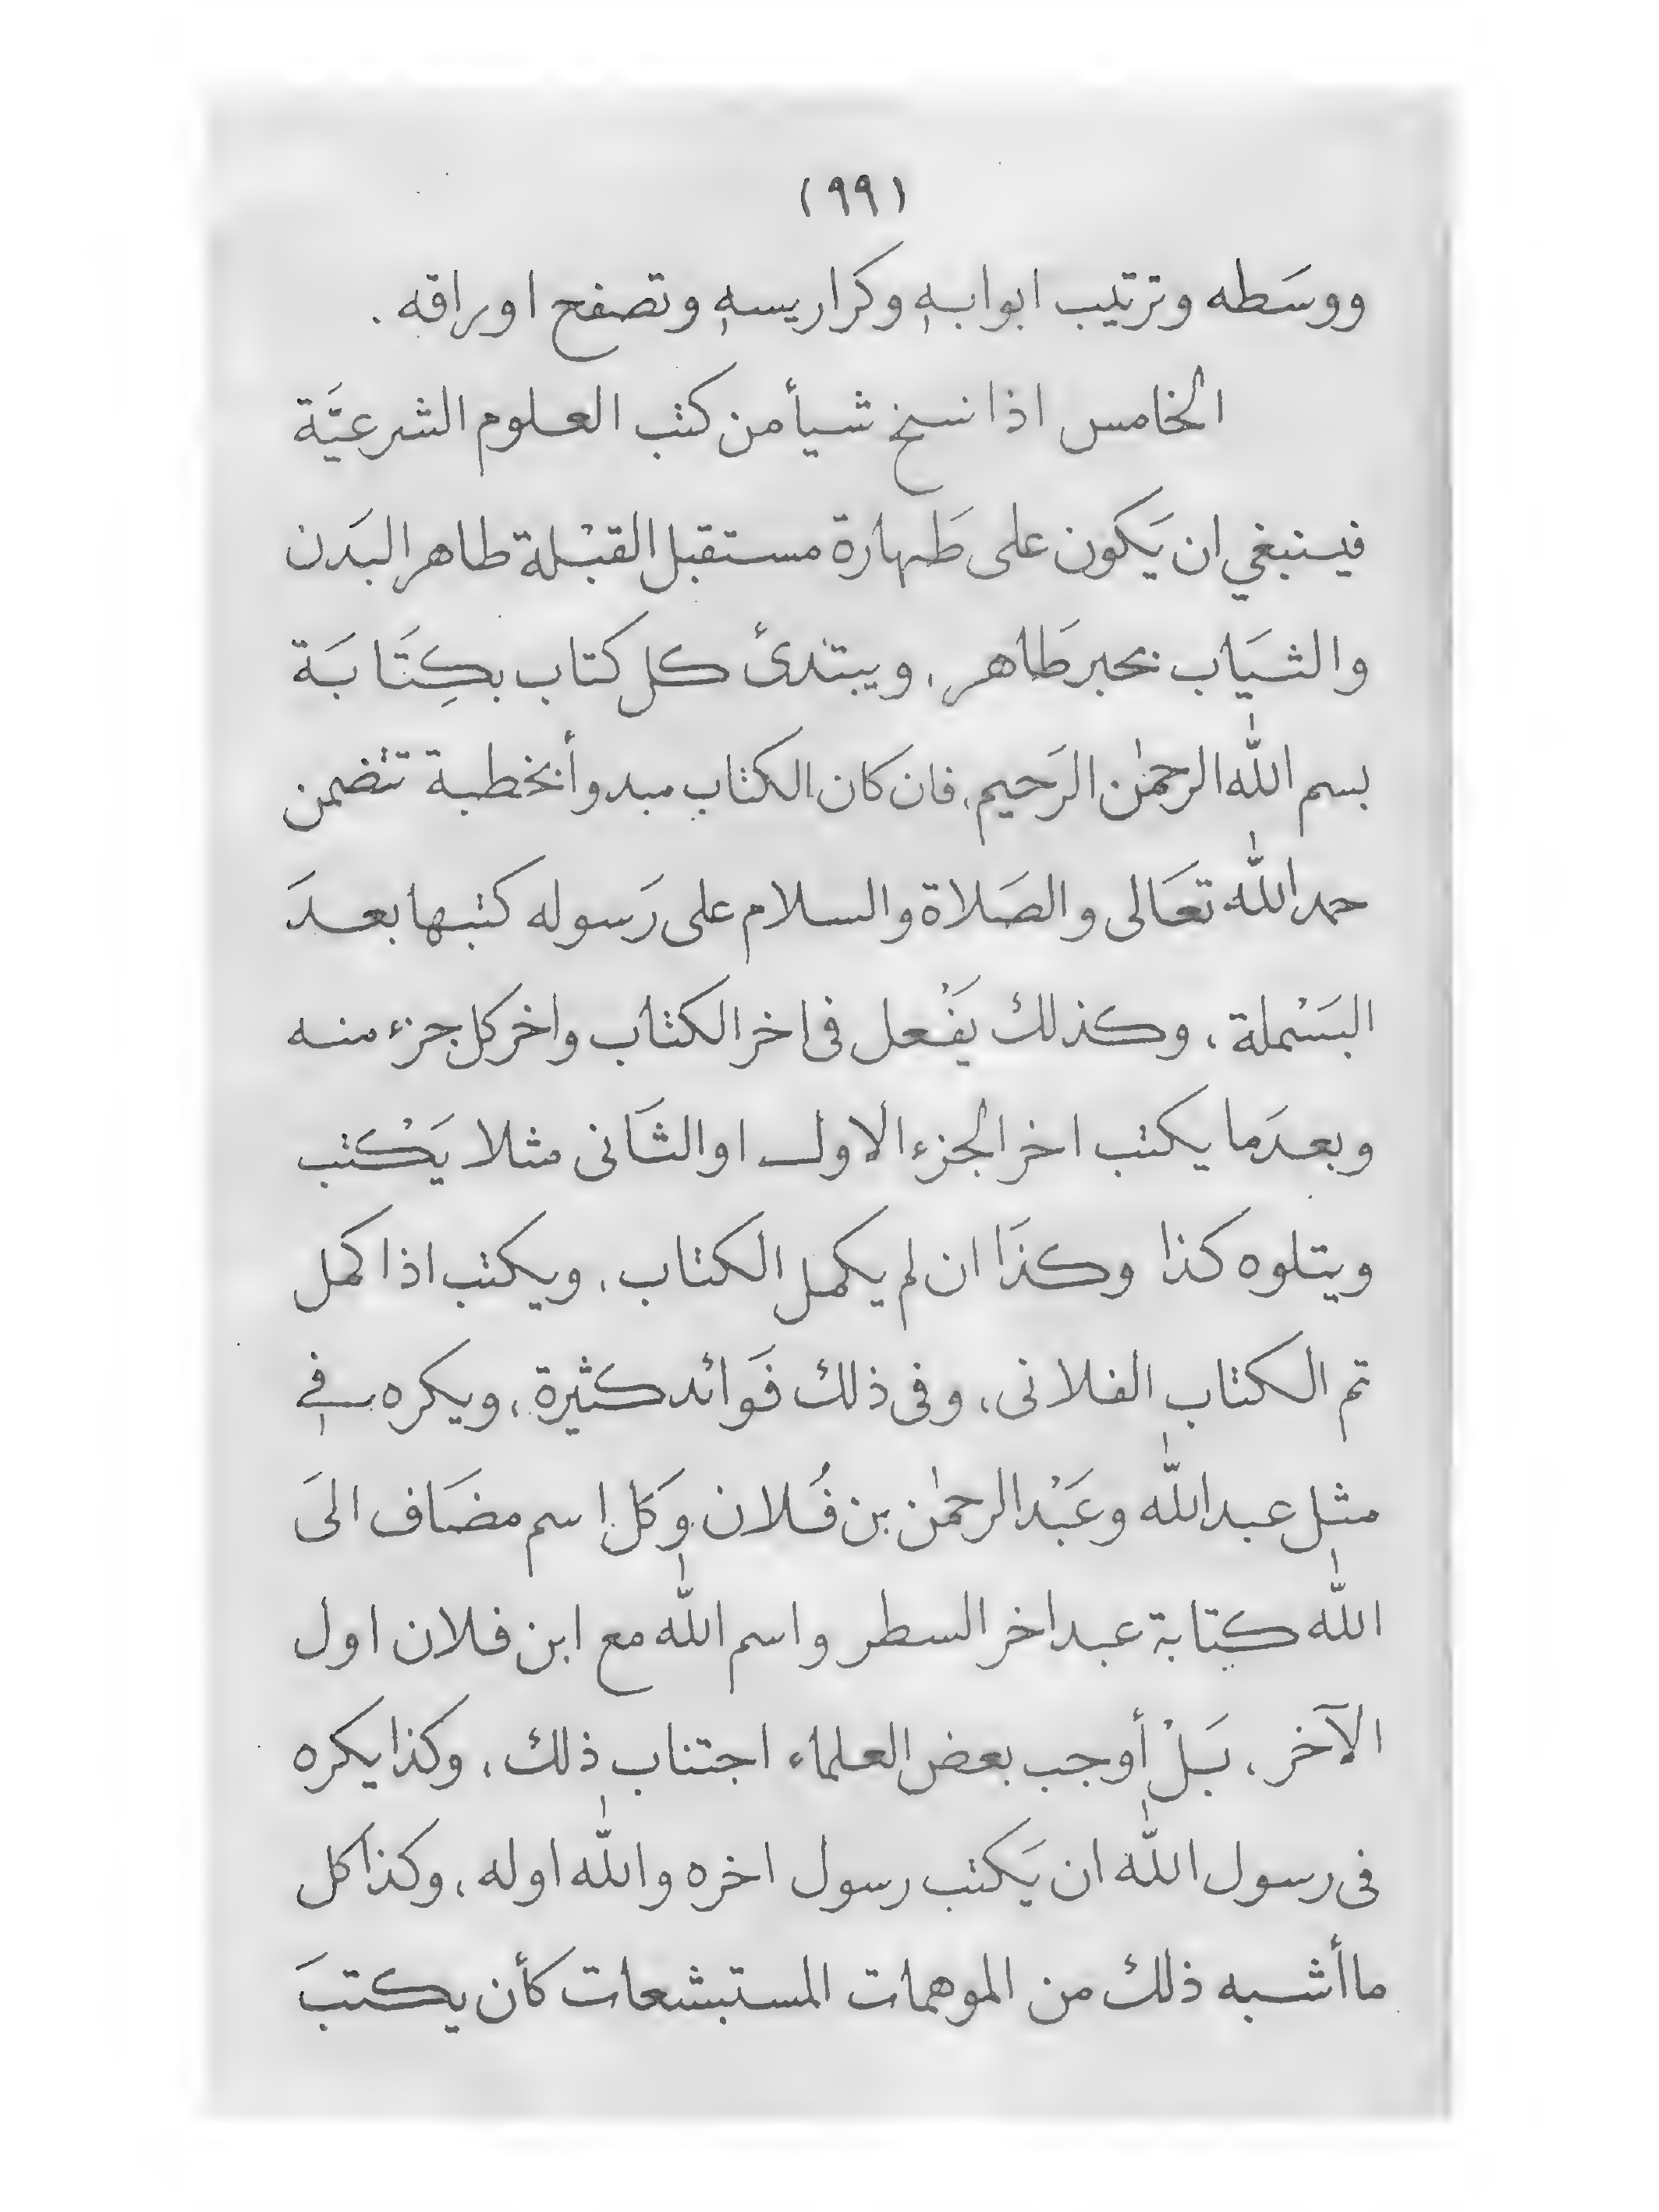 (٩٩)
ووسَطه وترتيب ابوابه وكراريسه وتصفح اوراقه .
الخامس اذا نسخ شيأ من كتب العلوم الشرعيَّة
فينبغي ان يَكون على طَهارة مستقبل القبْلة طاهر البَدن
والثيَاب بحبر طَاهر، ويبتدئ كل كتاب بكِتَابَة
بسم الله الرحمٰن الرَحيم، فان كان الكتاب مبدوأ بخطبة تتضمن
حمد الله تعَالى والصَلاة والسلام على رَسوله كتبها بعدَ
البَسْملة، وكذلك يَفْعل فى اخر الكتاب واخر كل جزء منه
وبعدَما يكتب اخر الجزء الاول او الثَانى مثلا يَكْتب
ويتلوه كذا وكذَا ان لم يكمل الكتاب، ويكتب اذا كمل
تم الكتاب الفلانى، وفى ذلك فَوائد كثيرة، ويكره في
مثل عبد الله وعَبْد الرحمٰن بن فُلان وَكل اسم مضَاف الىَ
الله كتابة عبد اخر السطر واسم الله مع ابن فلان اول
الآخر، بَلْ أوجب بعض العلماء اجتناب ذلك، وكذا يكره
فى رسول الله ان يَكتب رسول اخره والله اوله، وكذا كل
ما أشبه ذلك من الموهمات المستبشعات كأن يكتبَ